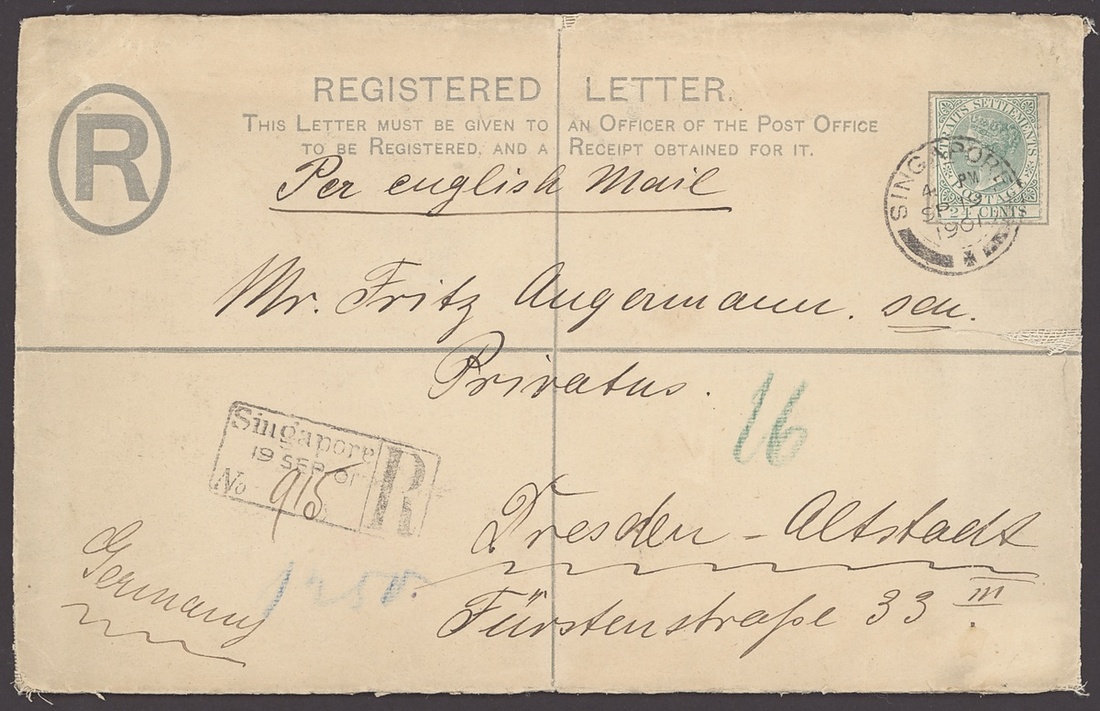 R
REGISTERED LETTER.
THIS LETTER MUST BE GIVEN TO AN OFFICER OF THE POST OFFICE
TO BE REGISTERED, AND A RECEIPT OBTAINED FOR IT.
Per english Mail
STRAITS SETTLEMENTS
POSTAGE
24 CENTS
SINGAPORE
4 PM
SP 19
1901
Mr. Fritz Angermann. sen.
Privatus.
16
Singapore
19 SEP. 01
No 915
R
Dresden-Altstadt
Germany
Fürstenstraße 33 III.